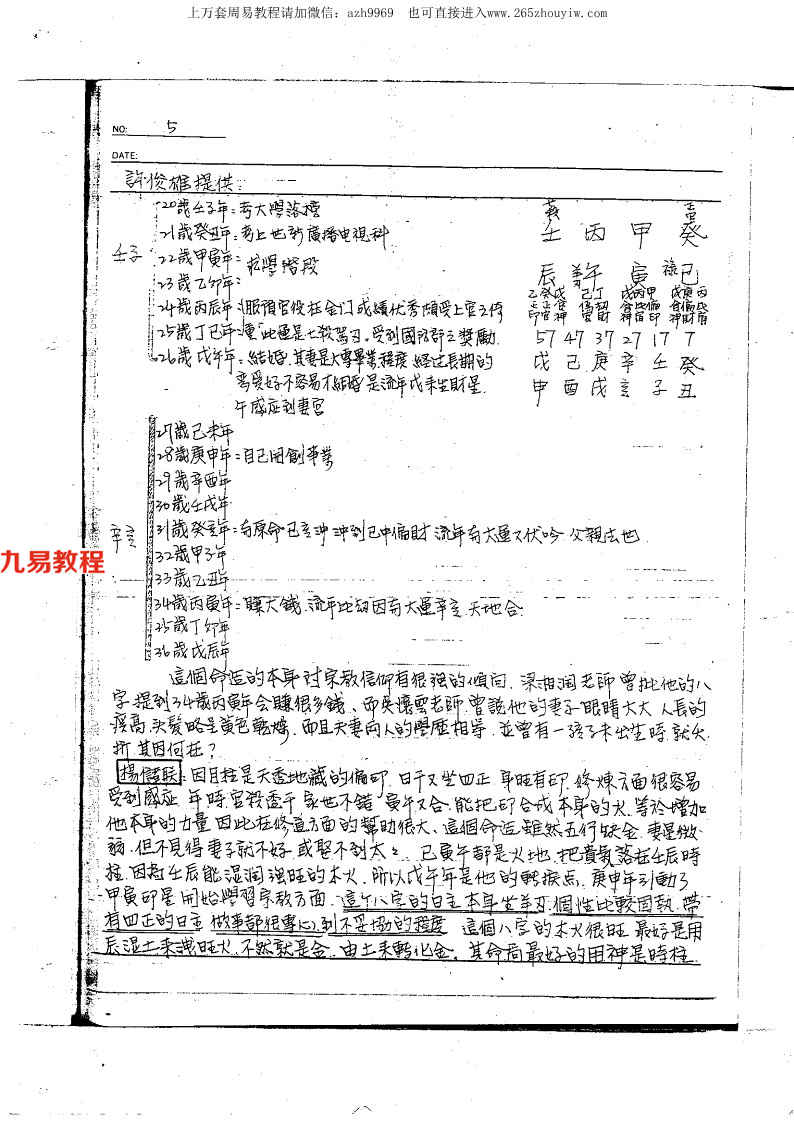 上万套周易教程请加微信：azh9969 也可直接进入www.265zhouyiw.com
NO: 5
DATE:
許俊雄提供：
20歲壬子年=考大學落榜
21歲癸丑年=考上世新廣播电視科
壬子
22歲甲寅年=求學階段
23歲乙卯年=
24歲丙辰年=服預官役在金门成績优秀頗受上官之倚
25歲丁巳年=重"此運是七殺駕刃。受到國防部之獎勵.
26歲戊午年=結婚.其妻是大專畢業程度 經过長期的
恋爱好不容易才結婚是流年戊来生財星.
午感应到妻宮
壬 丙 甲 癸
辰 午 寅 巳
57 47 37 27 17 7
戊 己 庚 辛 壬 癸
申 酉 戌 亥 子 丑
27歲己未年
28歲庚申年=自己開創事業
29歲辛酉年
30歲壬戌年
辛亥
31歲癸亥年=与原命巳亥沖 沖到巳中偏財 流年与大運又伏吟 父親去世
32歲甲子年
33歲乙丑年
34歲丙寅年=賺大錢.流年比劫因与大運辛亥 天地合.
35歲丁卯年
36歲戊辰年
九易教程
這個命造的本身对宗教信仰有很强的傾向. 梁湘潤老師曾批他的八
字提到34歲丙寅年会賺很多錢、而 老師曾說他的妻子眼睛大大 人長的
瘦高.头髮略呈黃色乾燥.而且夫妻两人的學歷相等.並曾有一孩子未出生時就夭
折 其因何在？
因月柱是天透地藏的偏印.日干又坐四正 身旺有印.修煉方面很容易
受到感应 年時官殺透干 家世不錯 寅午又合.能把印合成本身的火.等於增加
他本身的力量 因此在修道方面的幫助很大、這個命造雖然五行缺金.妻星微
弱.但不見得妻子就不好.或娶不到太太. 巳寅午都是火地.把貴氣落在壬辰時
柱.因为壬辰能湿润强旺的木火.所以戊午年是他的轉捩点.庚申年引動了
甲寅印星 開始學習宗教方面.這个八字的日主本身坐羊刃 個性比較固執.帶
有四正的日主 做事都很專心.到不妥協的程度 這個八字的木火很旺 最好是用
辰湿土来洩旺火.不然就是金.由土来轉化金。其命局最好的用神是時柱.